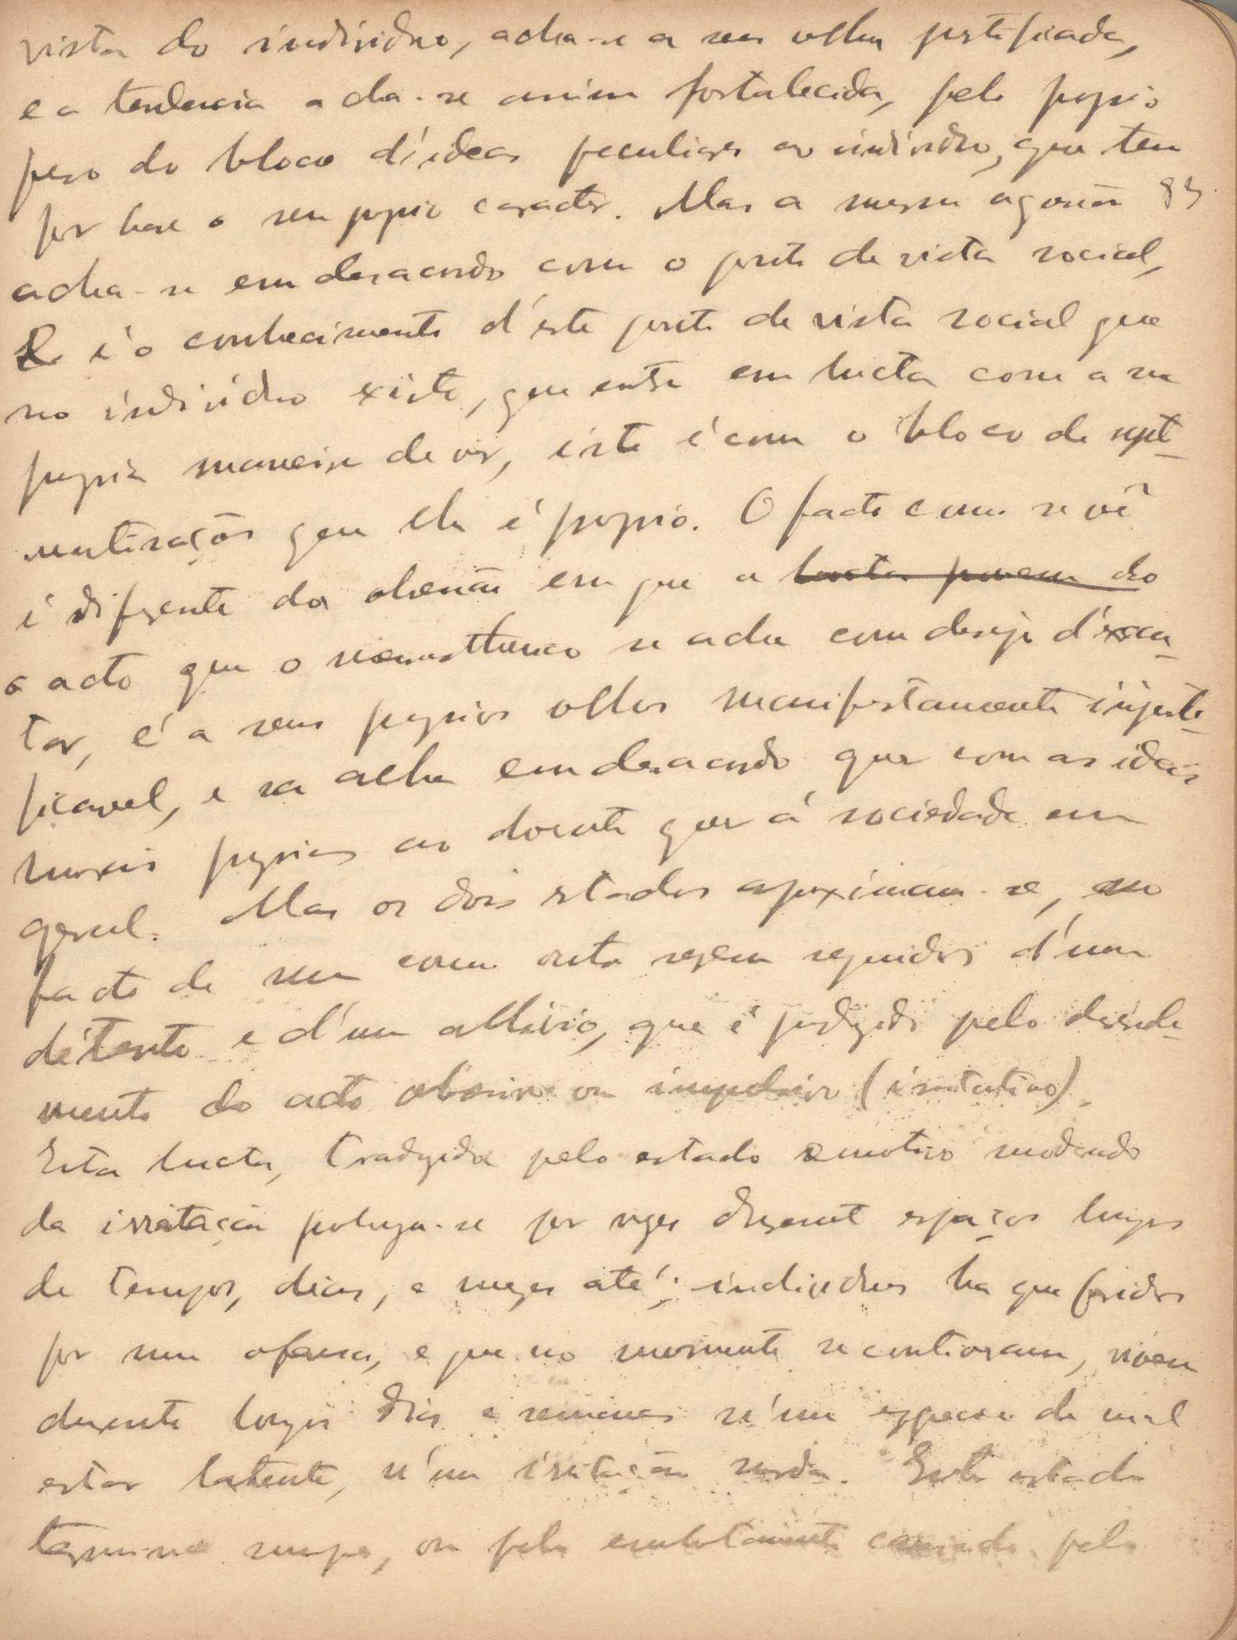 vista do individuo, acha-se a seus olhos justificada,
e a tendencia acha-se assim fortalecida, pelo proprio
peso do bloco d'ideas peculiares ao individuo, que tem
por base o seu proprio caracter. Mas a mesma 83
acha-se em desacordo com o ponto de vista social,
E é o conhecimento d'este ponto de vista social que
no individuo existe, que entra em lucta com a sua
propria maneira de ver, isto é com o bloco de
que lhe é proprio. O facto como se vê
é differente da obsessão em que a lucta porem do
o acto que o se acha com desejo d'execu-
tar, é a seus proprios olhos manifestamente injusti-
ficavel, e se acha em desacordo quer com as ideias
moraes proprias ao doente quer á sociedade em
geral. Mas os dois estados aproximam-se, no
facto de um como outro serem seguidos d'uma
détente e d'um allivio, que é produzido pelo desenla-
mento do acto obsessivo ou impulsivo (irritativo).
Esta lucta, traduzida pelo estado emotivo moderado
da irritação prolonga-se por vezes durante espaços longos
de tempos, dias, e mezes até; individuos ha que feridos
por uma ofensa, e que no momento se contiveram, vivem
durante longos dias e semanas n'uma especie de mal
estar latente, n'uma irritação surda. Este estado
termina sempre, ou pelo embotamento causado pelo